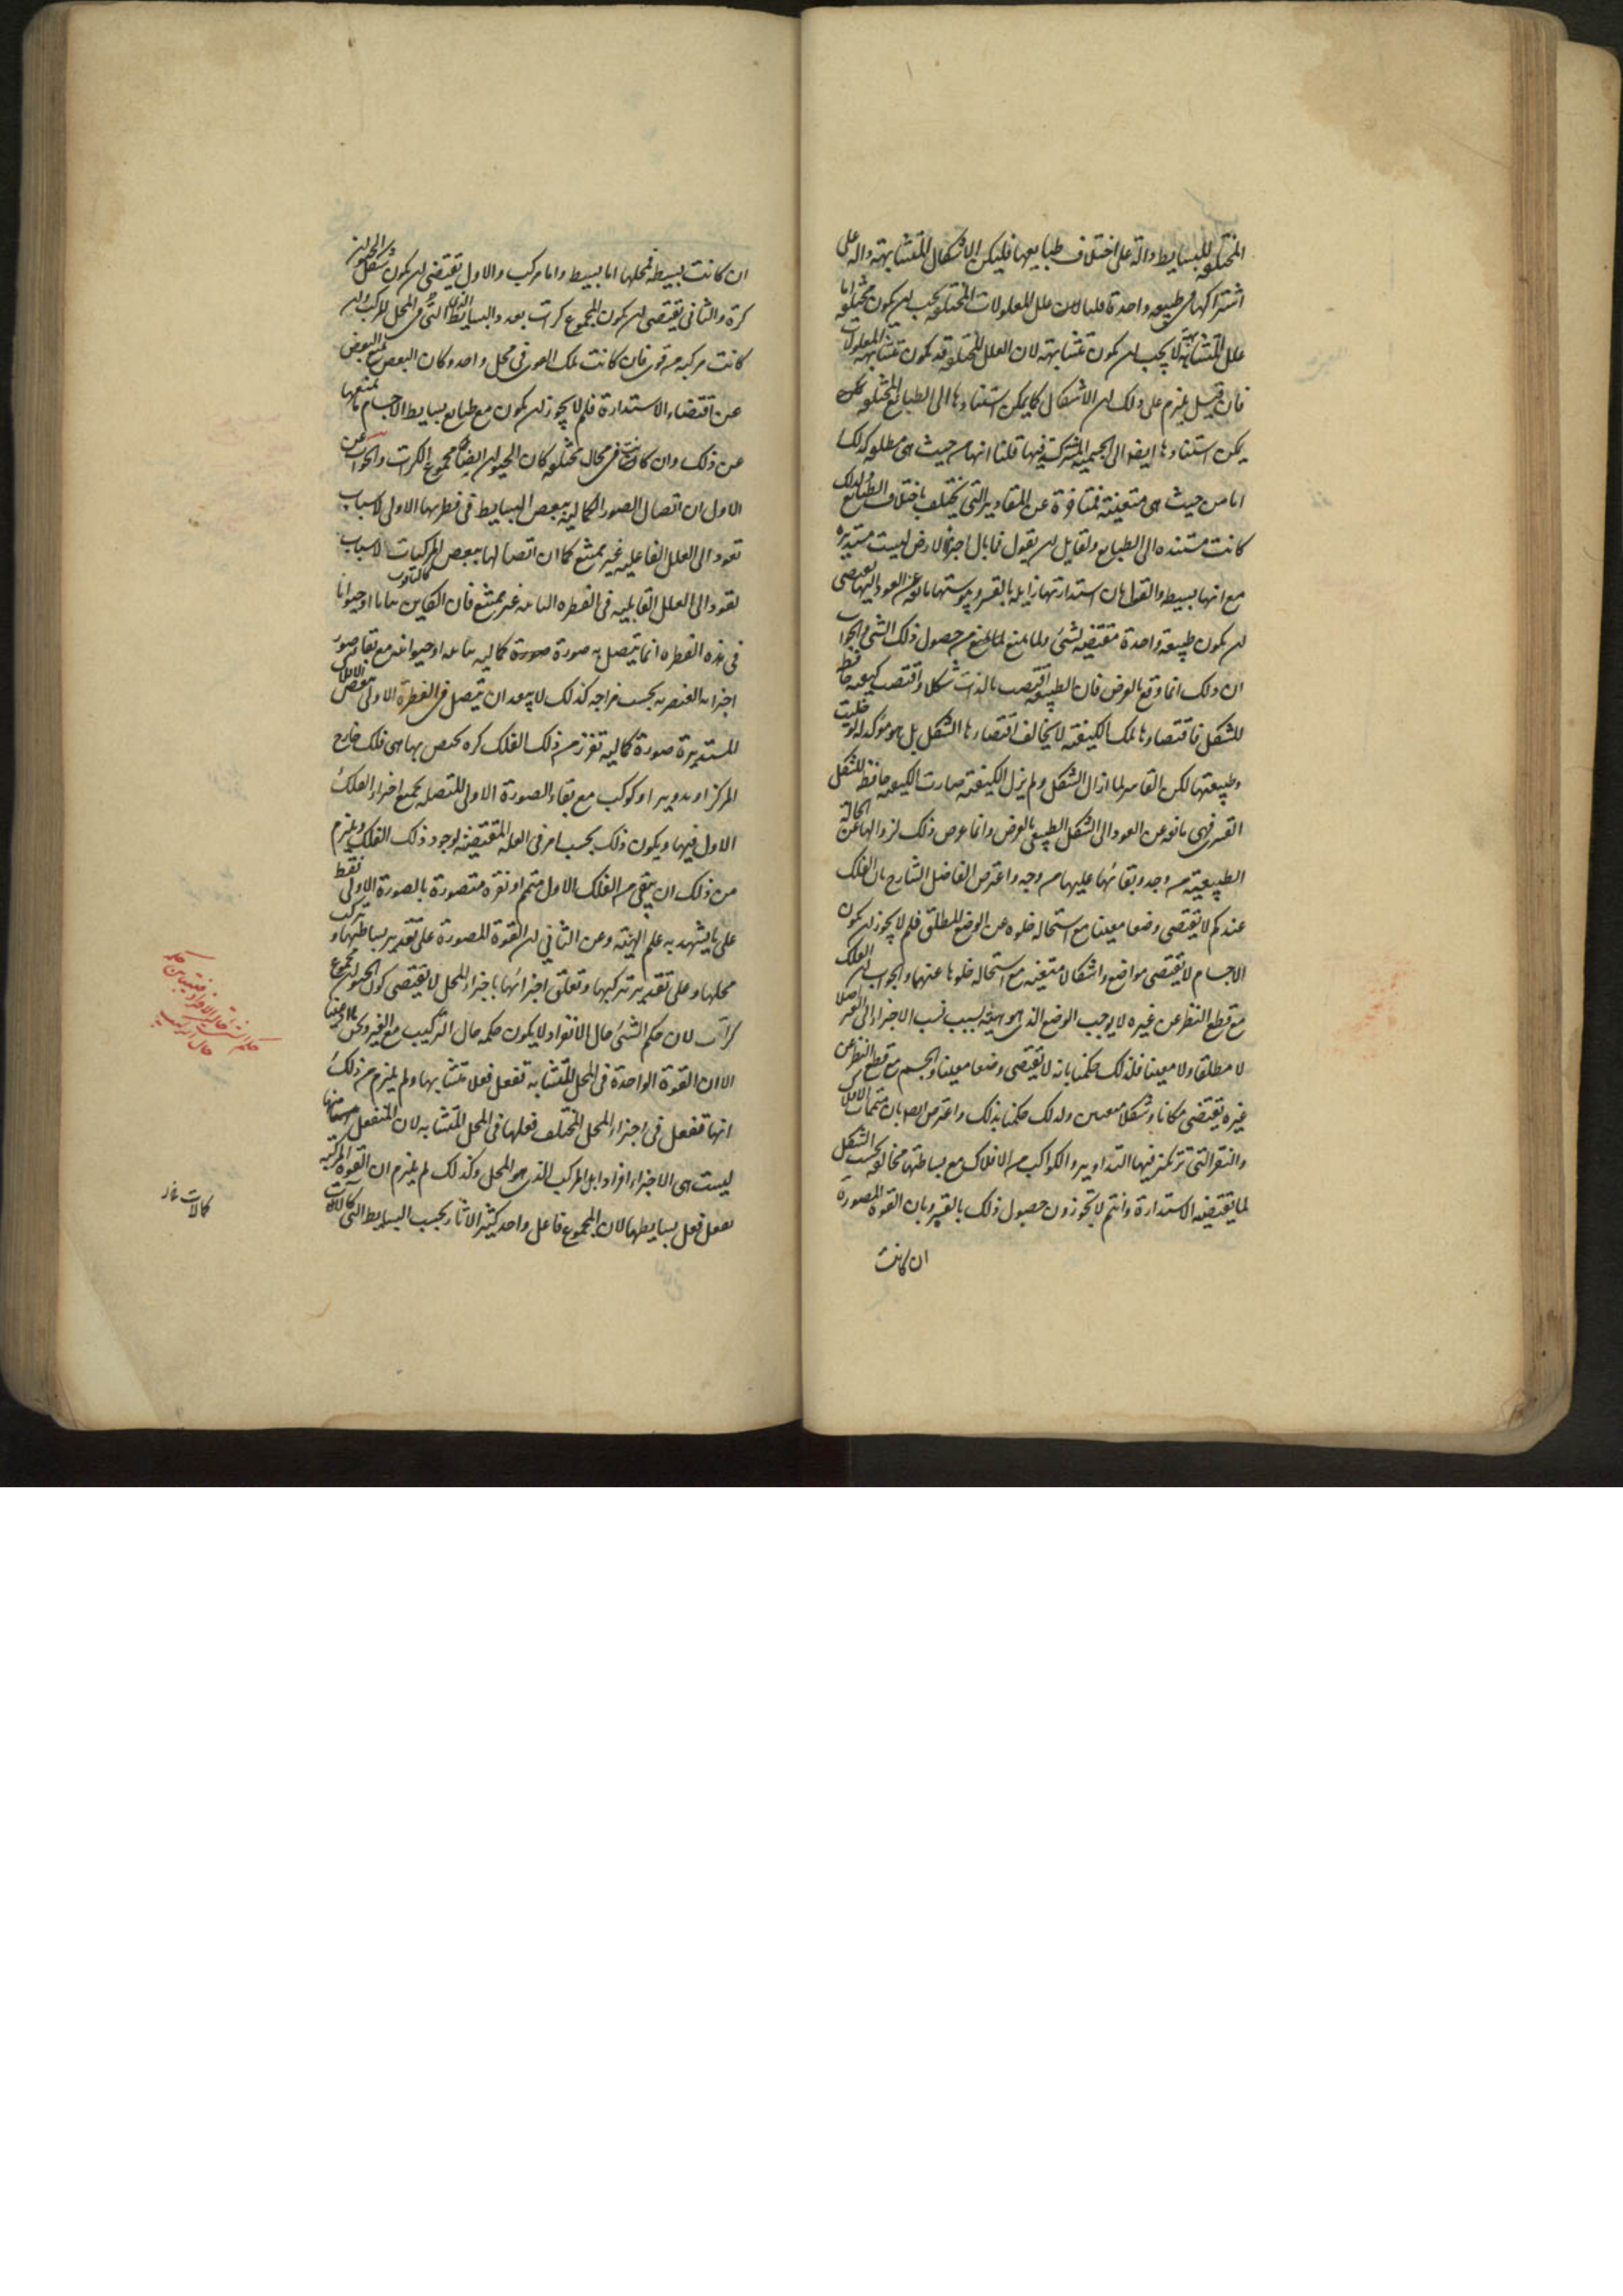 المختلفة للبسايط دالة على اختلاف طبايعها فليكن الاشكال المتشابهة دالة على
اشتراكها في طبيعة واحدة قلنا لا لان علل المعلولات المختلفة يجب ان يكون مختلفة اما
علل المتشابهة لا يجب ان يكون متشابهة لان العلل المختلفة قد يكون متشابهة المعلولات
فان قيل يلزم على ذلك ان الاشكال كما يمكن استنادها الى الطبايع المختلفة
يمكن استنادها ايضا الى الجسمية المشتركة فيها قلنا انها من حيث هي مطلقة كذلك
اما من حيث هي متعينة فمتاخرة عن المقادير التي يختلف باختلاف الطبايع ولذلك
كانت مستنده الى الطبايع ولقايل ان يقول فما بال اجزاء الارض ليست مستديرة
مع انها بسيطة والقول بان استدارتها زايلة بالقسر ويبوستها مانعة عن العود اليها يقتضى
ان يكون طبيعة واحدة مقتضية لشئ ولما يمنع من حصول ذلك الشئ والجواب
ان ذلك انما وقع بالعرض فان الطبيعة اقتضت بالذات شكلا واقتضت كيفية حافظة
للشكل فاقتضاوها لتلك الكيفية لا يخالف اقتضاءها الشكل بل هو موكد له لو خليت
وطبيعتها لكن القاسر لما ازال الشكل ولم يزل الكيفية صارت الكيفية حافظة للشكل
القسرى فهى مانعة عن العود الى الشكل الطبيعى بالعرض وانما عرض ذلك لزوالها عن الحالة
الطبيعية من وجه وبقائها عليها من وجه واعترض الفاضل الشارح بان الفلك
عندكم لا يقتضى وضعا معينا مع استحالة خلوه عن الوضع المطلق فلم لا يجوز ان يكون
الاجسام لا يقتضى مواضع واشكالا متعينة مع استحالة خلوها عنهما والجواب ان الفلك
مع قطع النظر عن غيره لا يوجب الوضع الذى هو هيئة بسبب نسب الاجزاء الى الغير اصلا
لا مطلقا ولا معينا فلذلك حكمنا بانه لا يقتضى وضعا معينا والجسم مع قطع النظر عن
غيره يقتضى مكانا وشكلا معينين ولذلك حكمنا بذلك واعترض ايضا بان متممات الافلاك
والنقر التى تركز فيها التداوير والكواكب من الافلاك مع بساطتها مخالفة بحسب الشكل
لما يقتضيه الاستدارة وانتم لا تجوزون حصول ذلك بالقسر وبان القوة المصورة
ان كانت
ان كانت بسيطة فمحلها اما بسيط واما مركب والاول يقتضى ان يكون شكل الحيوان
كرة والثانى يقتضى ان يكون المجموع كرات بعدد البسايط التى فى المحل المركب وان
كانت مركبة من قوى فان كانت تلك القوى فى محل واحد وكان البعض يمنع البعض
عن اقتضاء الاستدارة فلم لا يجوز ان يكون مع طبايع بسايط الاجسام ما يمنعها
عن ذلك وان كانت فى محال مختلفة كان الحيوان ايضا مجموع الكرات والجواب عن
الاول ان اتصال الصور الكمالية ببعض البسايط فى فطرتها الاولى لاسباب
تعود الى العلل الفاعلية غير ممتنع كما ان اتصالها ببعض المركبات لاسباب
تعود الى العلل القابلية فى الفطرة الثانية غير ممتنع فان الكاين نباتا او حيوانا
فى هذه الفطرة انما يتصل به صورة كمالية نباتية او حيوانية مع بقاء صور
اجزائه العنصرية بحسب مزاجه كذلك لا يبعد ان يتصل فى الفطرة الاولى ببعض الافلاك
المستديرة صورة كمالية تفرز من ذلك الفلك كرة تختص بها هى فلك خارج
المركز او تدوير او كوكب مع بقاء الصورة الاولى المتصلة بجميع اجزاء الفلك
الاول فيها ويكون ذلك بحسب امر فى العلة المقتضية لوجود ذلك الفلك ويلزم
من ذلك ان يبقى من الفلك الاول متمم او نقرة متصورة بالصورة الاولى فقط
على ما يشهد به علم الهيئة وعن الثانى ان القوة المصورة على تقدير بساطتها وتركب
محلها وعلى تقدير تركبها وتعلق اجزائها باجزاء المحل لا يقتضى كون الحيوان مجموع
كرات لان حكم الشئ حال الانفراد لا يكون حكمه حال التركيب مع الغير ونحن ما ادعينا
الا ان القوة الواحدة فى المحل المتشابه تفعل فعلا متشابها ولم يلزم من ذلك
انها تفعل فى اجزاء المحل المختلف فعلها فى المحل المتشابه لان المنفعل
ليست هى الاجزاء افرادا بل المركب الذى هو المحل وكذلك لم يلزم ان القوة المركبة
تفعل فعل بسايطها لان المجموع فاعل واحد كثير الاثار بحسب البسايط التى كالآلات